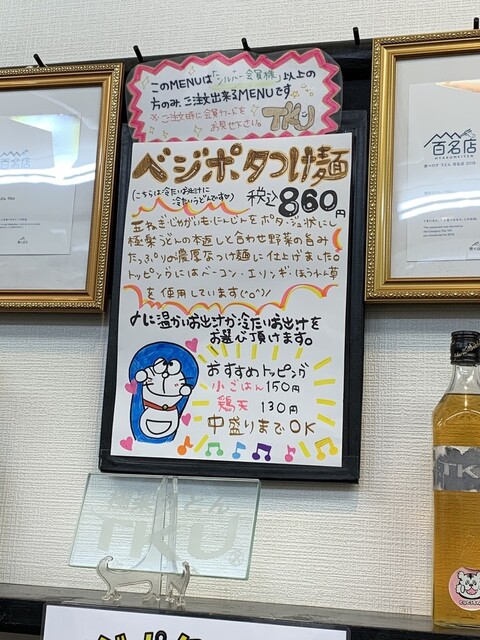 このMENUは「シルバー会員様」以上の
方のみ、ご注文出来るMENUです。
※ご注文時に会員カードを
お見せ下さい。
TKU
ベジポタつけ麺
(こちらは冷たいお出汁に
冷たいうどんです♡)
税込860円
玉ねぎ・じゃがいも・にんじんをポタージュ状にし
極楽うどんの本返しと合わせ野菜の旨み
たっぷりの濃厚なつけ麺に仕上げました。
トッピングにはベーコン・エリンギ・ほうれん草
を使用しています(^o^)/
♪に温かいお出汁か冷たいお出汁を
お選び頂けます。
おすすめトッピング
小ごはん 150円
鶏天 130円
中盛りまでOK
百名店
HYAKUMEITEN
百名店
極楽うどん
TKU
TKU